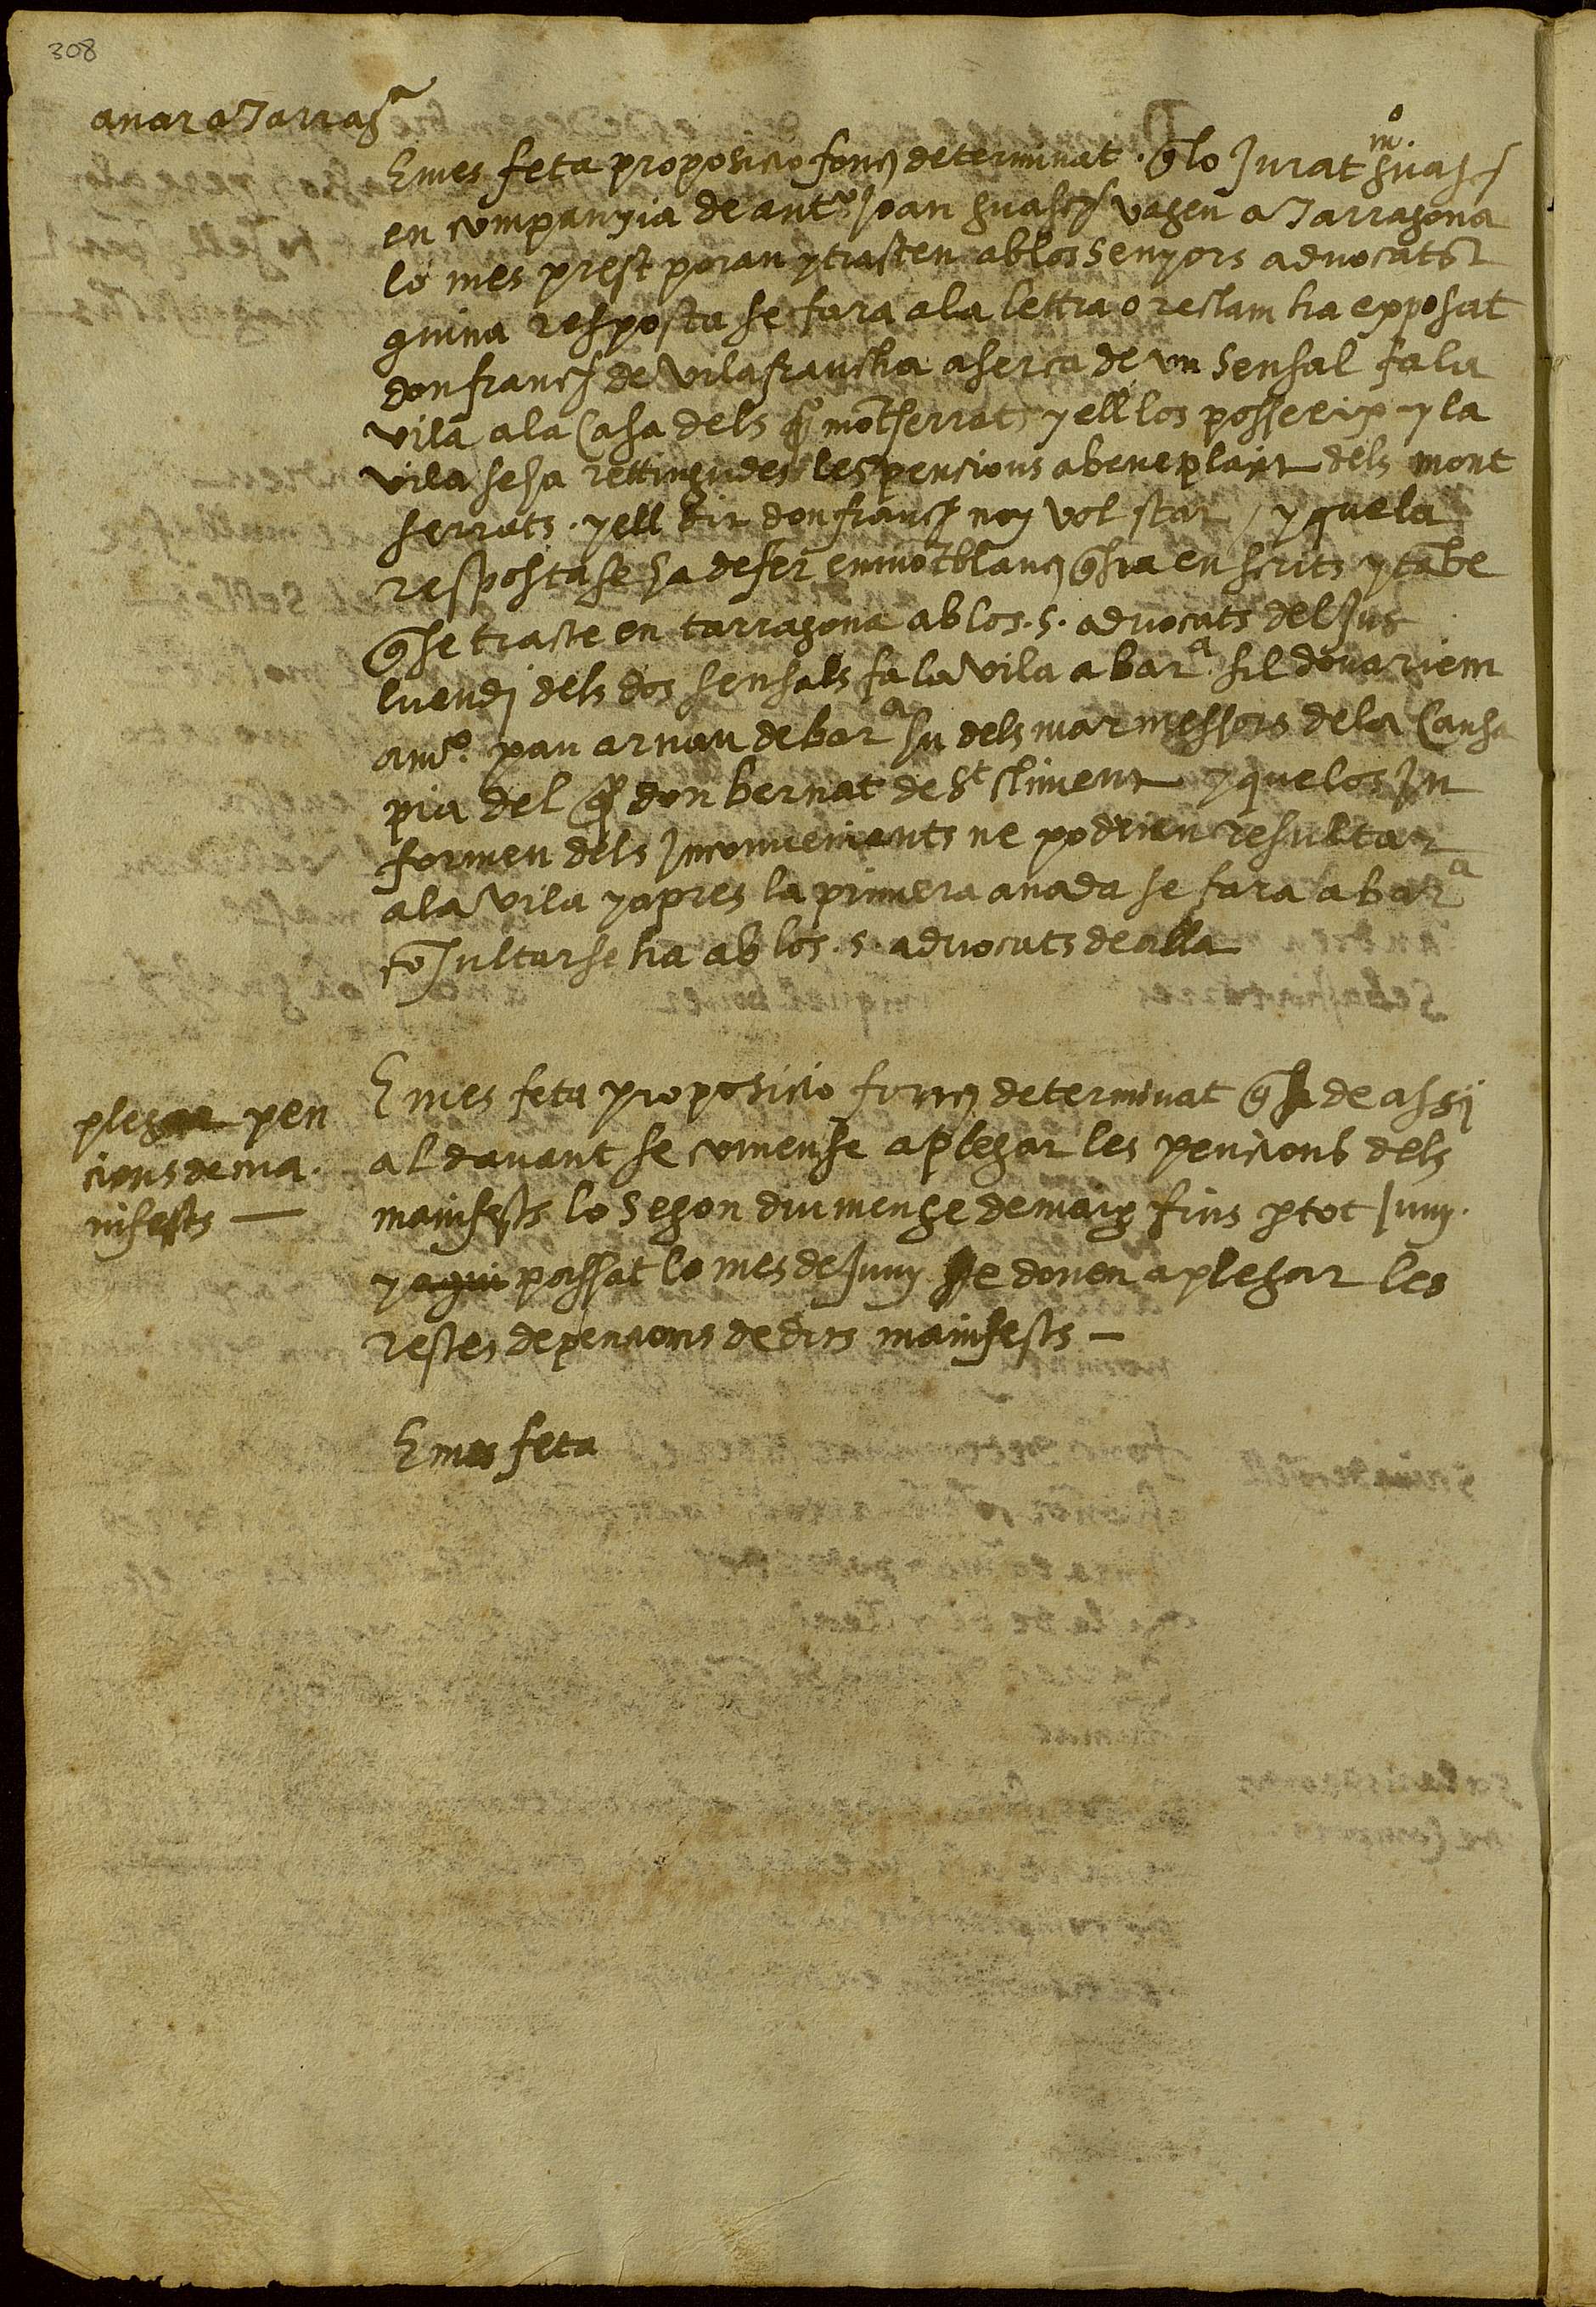 308
anar a Tarragª
E mes feta proposicio fonch determinat q̃ lo Jurat mº guasch
en companyia de antº Joan guasch vagen a Tarragona
lo mes prest poran y tracten ab los senyors advocats
quina resposta se fara a la lettra o reclam ha expposat
don franch de vilafrancha aserca de un sensal fa la
vila a la Casa dels qº mõtserrats y ell los posseeix y la
vila se ha rettingudes les pencions a beneplacit dels mont
serrats . y ell dit don franch noy vol star / y que la
resposta se ha de fer en mõtblanch q̃ sia en scrits y tãbe
q̃ se tracte en tarragona ab los . s . advocats del Jus
luendj dels dos sensals fa la vila a barª sil donariem
a mº. pau arnau de barª hu dels marmessors de la Causa
pia del qº don bernat de St Climent y que los In
formen dels Inconvenients ne podrien resultar
a la vila y apres la primera anada se fara a barª
cõsultarse ha ab los . s . advocats de alla
plegar pen
cions de ma
nifests —
E mes feta proposicio fonch determinat q̃ de assj
al davant se comense a plegar les pencions dels
manifests lo segon diumenge de maig fins p tot Juny .
y aqui passat lo mes de Juny se donen a plegar les
restes de pencions de dits manifests —
E mes feta